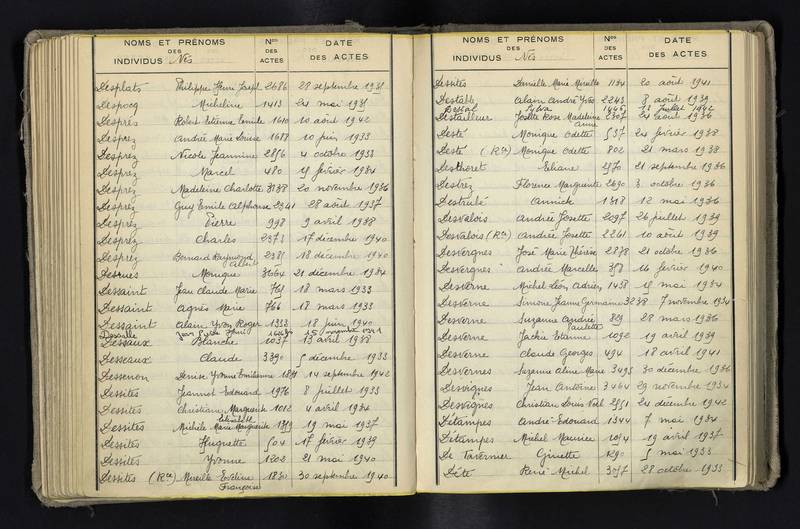 NOMS ET PRÉNOMS
DES
INDIVIDUS Nés
Nos
DES
ACTES
DATE
DES ACTES
Desplats Philippe Henri Joseph 2686 28 septembre 1931
Despocq Micheline 1413 24 mai 1931
Després Robert Etienne Emile 1610 10 août 1942
Desprez Andrée Marie Louise 1687 10 juin 1933
Desprez Nicole Jeannine 2856 4 octobre 1933
Desprez Marcel 480 15 février 1934
Desprez Madeleine Charlotte 3138 20 novembre 1936
Desprez Guy Emile Alphonse 2341 28 août 1937
Desprez Pierre 998 9 avril 1938
Desprez Charles 2373 17 décembre 1940
Desprez Bernard Raymond 2381 18 décembre 1940
Albert
Desrues Monique 3664 21 décembre 1934
Dessaint Jean Claude Marie 765 18 mars 1933
Dessaint Agnès Marie 766 18 mars 1933
Dessaint Alain Yvon Roger 1353 18 juin 1940
Dessaux Blanche 1037 13 avril 1938
Desseaux Claude 3390 5 décembre 1933
Dessenon Denise Yvonne Emilienne 14 septembre 1942
Dessites Jeannot Edouard 1976 8 juillet 1933
Dessites Christiane Marguerite 1012 4 avril 1934
Elisabeth
Dessites Michèle Marie Marguerite 1359 19 mai 1937
Dessites Huguette 504 17 février 1939
Dessites Yvonne 1203 21 mai 1940
Dessites (Rce) Mireille Eveline 1830 30 septembre 1940
Françoise
NOMS ET PRÉNOMS
DES
INDIVIDUS Nés
Nos
DES
ACTES
DATE
DES ACTES
Dessites Danielle Marie Mireille 1134 20 août 1941
Destable Alain André Yves 2243 8 août 1939
Destailleur Josette Rose Madeleine 2307 24 août 1936
Anne
Desté Monique Odette 537 24 février 1938
Desté (Rce) Monique Odette 802 21 mars 1938
Desthoret Eliane 2570 21 septembre 1936
Destrez Florence Marguerite 2690 3 octobre 1936
Destruhé Annick 1318 12 mai 1936
Desvalois Andrée Josette 2097 26 juillet 1939
Desvalois (Rce) Andrée Josette 2261 10 août 1939
Desvergnes José Marie Thérèse 2878 21 octobre 1936
Desvergnes Andrée Marcelle 358 16 février 1940
Desverne Michel Léon Adrien 1458 15 mai 1934
Desverne Simone Jeanne Germaine 3238 7 novembre 1934
Desverne Suzanne Andrée 829 28 mars 1936
Paulette
Desverne Jackie Etienne 1092 19 avril 1939
Desverne Claude Georges 494 18 avril 1941
Desvernes Suzanne Aline Marie 3495 30 décembre 1936
Desvignes Jean Antoine 3464 29 novembre 1934
Desvignes Christian Louis Noël 2551 24 décembre 1942
Détampes André Edouard 1344 7 mai 1934
Détampes Michel Maurice 1094 19 avril 1937
De Tavernier Ginette 1290 5 mai 1933
Dété René Michel 3057 28 octobre 1933